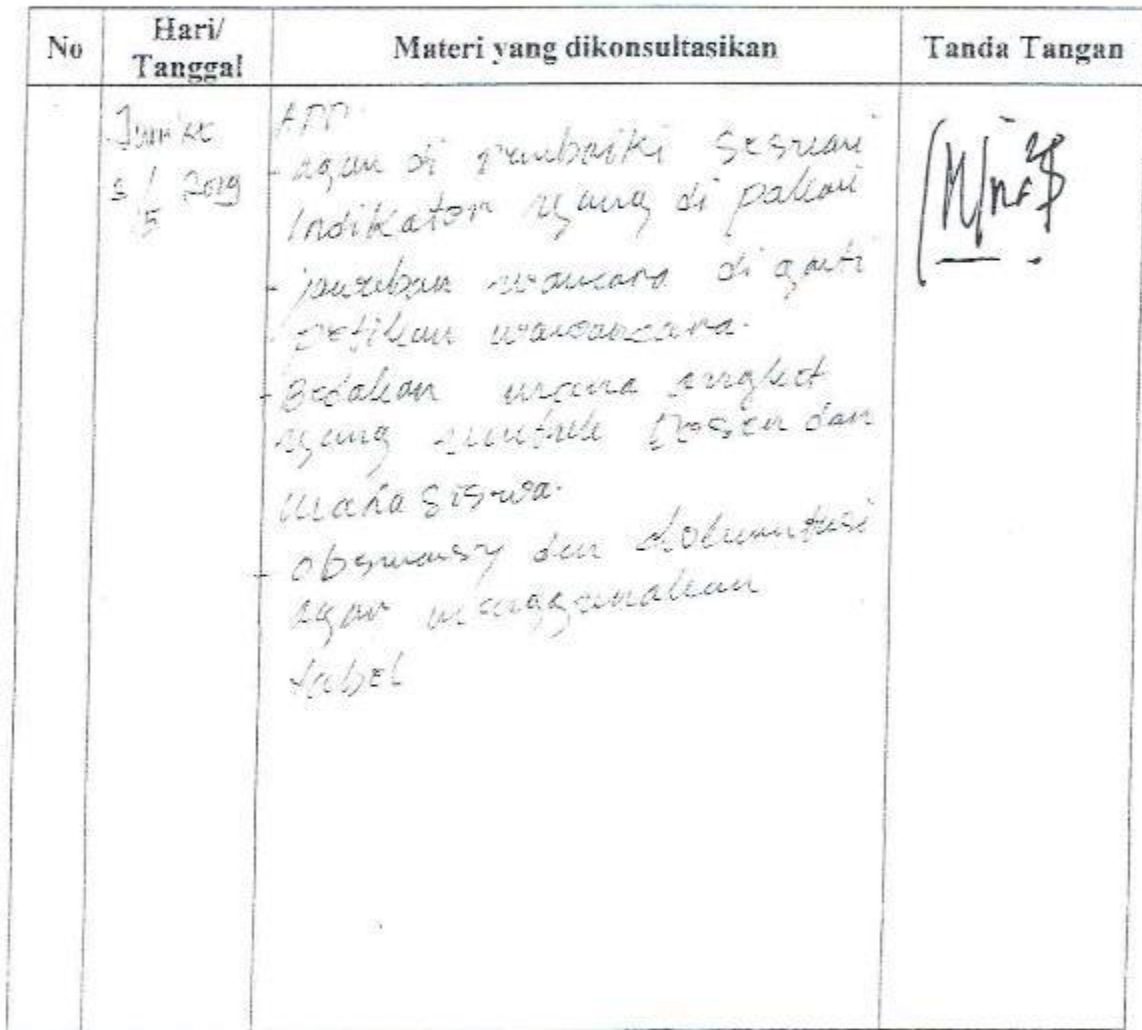 No
Hari/
Tanggal
Materi yang dikonsultasikan
Tanda Tangan
Jum'at
5 2019
APD
- agar di sesuai
Indikator yang di pakai
- wawancara di ganti
petikan wawancara.
- Bedakan mana angket
yang untuk Dosen dan
Mahasiswa.
- observasy dan dokumentasi
agar menggunakan
tabel